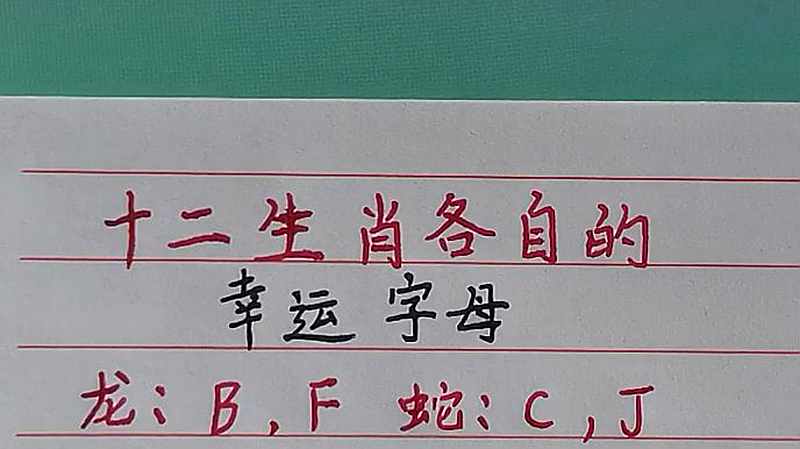 十二生肖各自的
幸运字母
龙：B，F 蛇：C，J